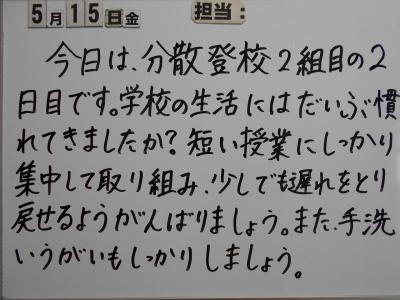 5月15日金 担当:
今日は、分散登校2組目の2
日目です。学校の生活にはだいぶ慣
れてきましたか?短い授業にしっかり
集中して取り組み、少しでも遅れをとり
戻せるようがんばりましょう。また、手洗
いうがいもしっかりしましょう。